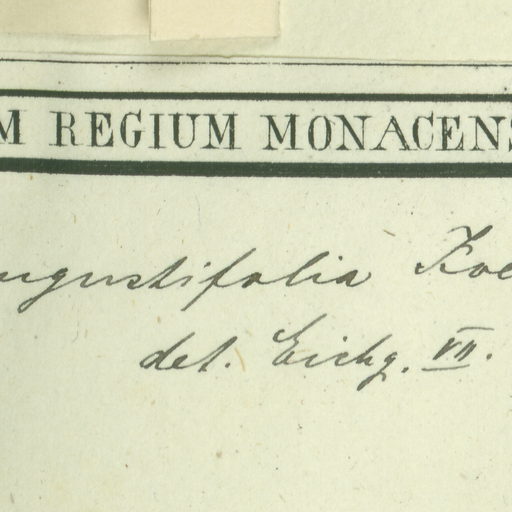 M REGIUM MONACENS
ngustifolia Koe
det. Eichg. VII.